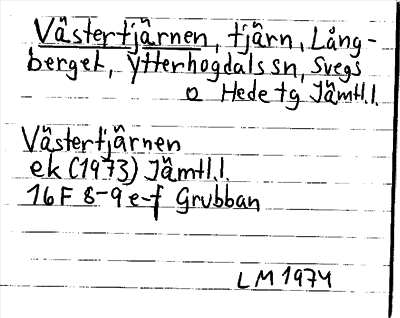 Västertjärnen, tjärn, Lång-
berget, Ytterhogdals sn, Svegs
o Hede tg Jämtl.l.
Västertjärnen
ek (1973) Jämtl.l.
16 F 8-9 e-f Grubban
LM 1974